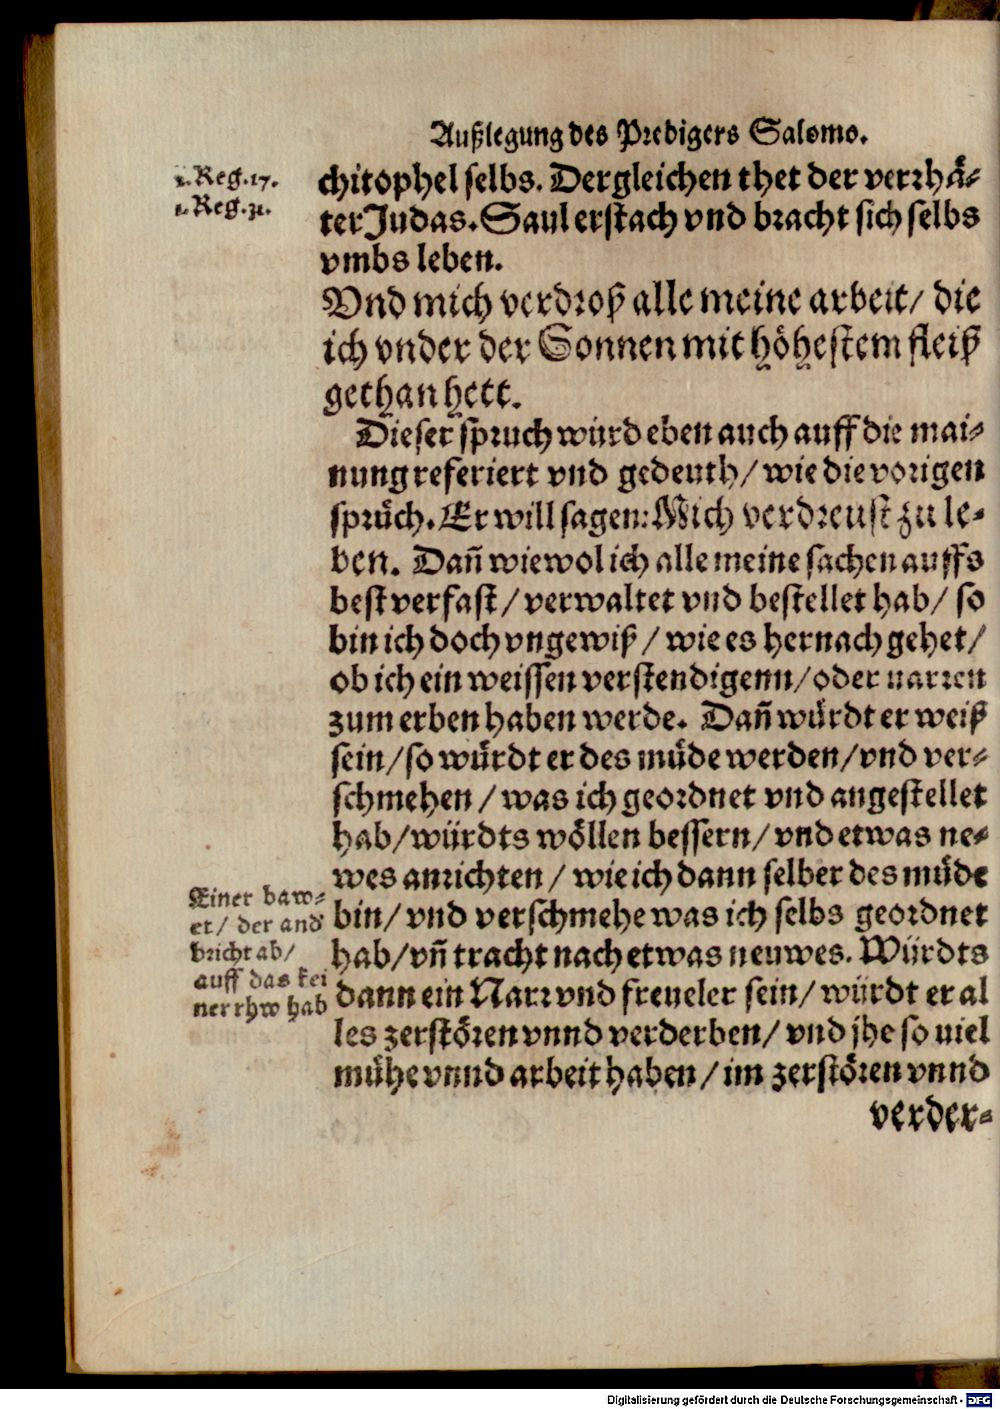 Außlegung des Predigers Salomo.
2. Reg. 17.
1. Reg. 31.
chitophel selbs. Dergleichen thet der verrhä-
ter Judas. Saul erstach vnd bracht sich selbs
vmbs leben.
Vnd mich verdroß alle meine arbeit/ die
ich vnder der Sonnen mit höhestem fleiß
gethan hett.
Dieser spruch würd eben auch auff die mai-
nung referiert vnd gedeuth/ wie die vorigen
sprüch. Er will sagen: Mich verdreust zu le-
ben. Dañ wiewol ich alle meine sachen auffs
best verfast/ verwaltet vnd bestellet hab/ so
bin ich doch vngewiß/ wie es hernach gehet/
ob ich ein weissen verstendigenn/ oder narren
zum erben haben werde. Dañ würdt er weiß
sein/ so würdt er des müde werden/ vnd ver-
schmehen/ was ich geordnet vnd angestellet
hab/ würdts wöllen bessern/ vnd etwas ne-
wes anrichten/ wie ich dann selber des müde
bin/ vnd verschmehe was ich selbs geordnet
hab/ vñ tracht nach etwas neuwes. Würdts
dann ein Narr vnd freueler sein/ würdt er al
les zerstören vnnd verderben/ vnd jhe so uiel
mühe vnnd arbeit haben/ im zerstören vnnd
verder-
Einer baw-
et/ der and
bricht ab/
auff das kei
ner rhw hab
Digitalisierung gefördert durch die Deutsche Forschungsgemeinschaft - DFG